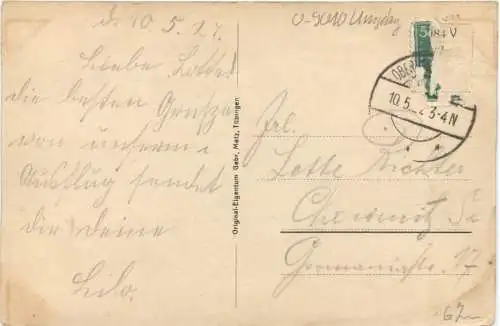 d. 10.5.27.
Liebe Lotte!
die besten Grüsse
von unserm
Ausflug sendet
dir deine
Lilo.
Original-Eigentum Gebr. Metz, Tübingen
10.5. 3-4N
Frl.
Lotte Richter
Chemnitz
Germaniastr. 17
67